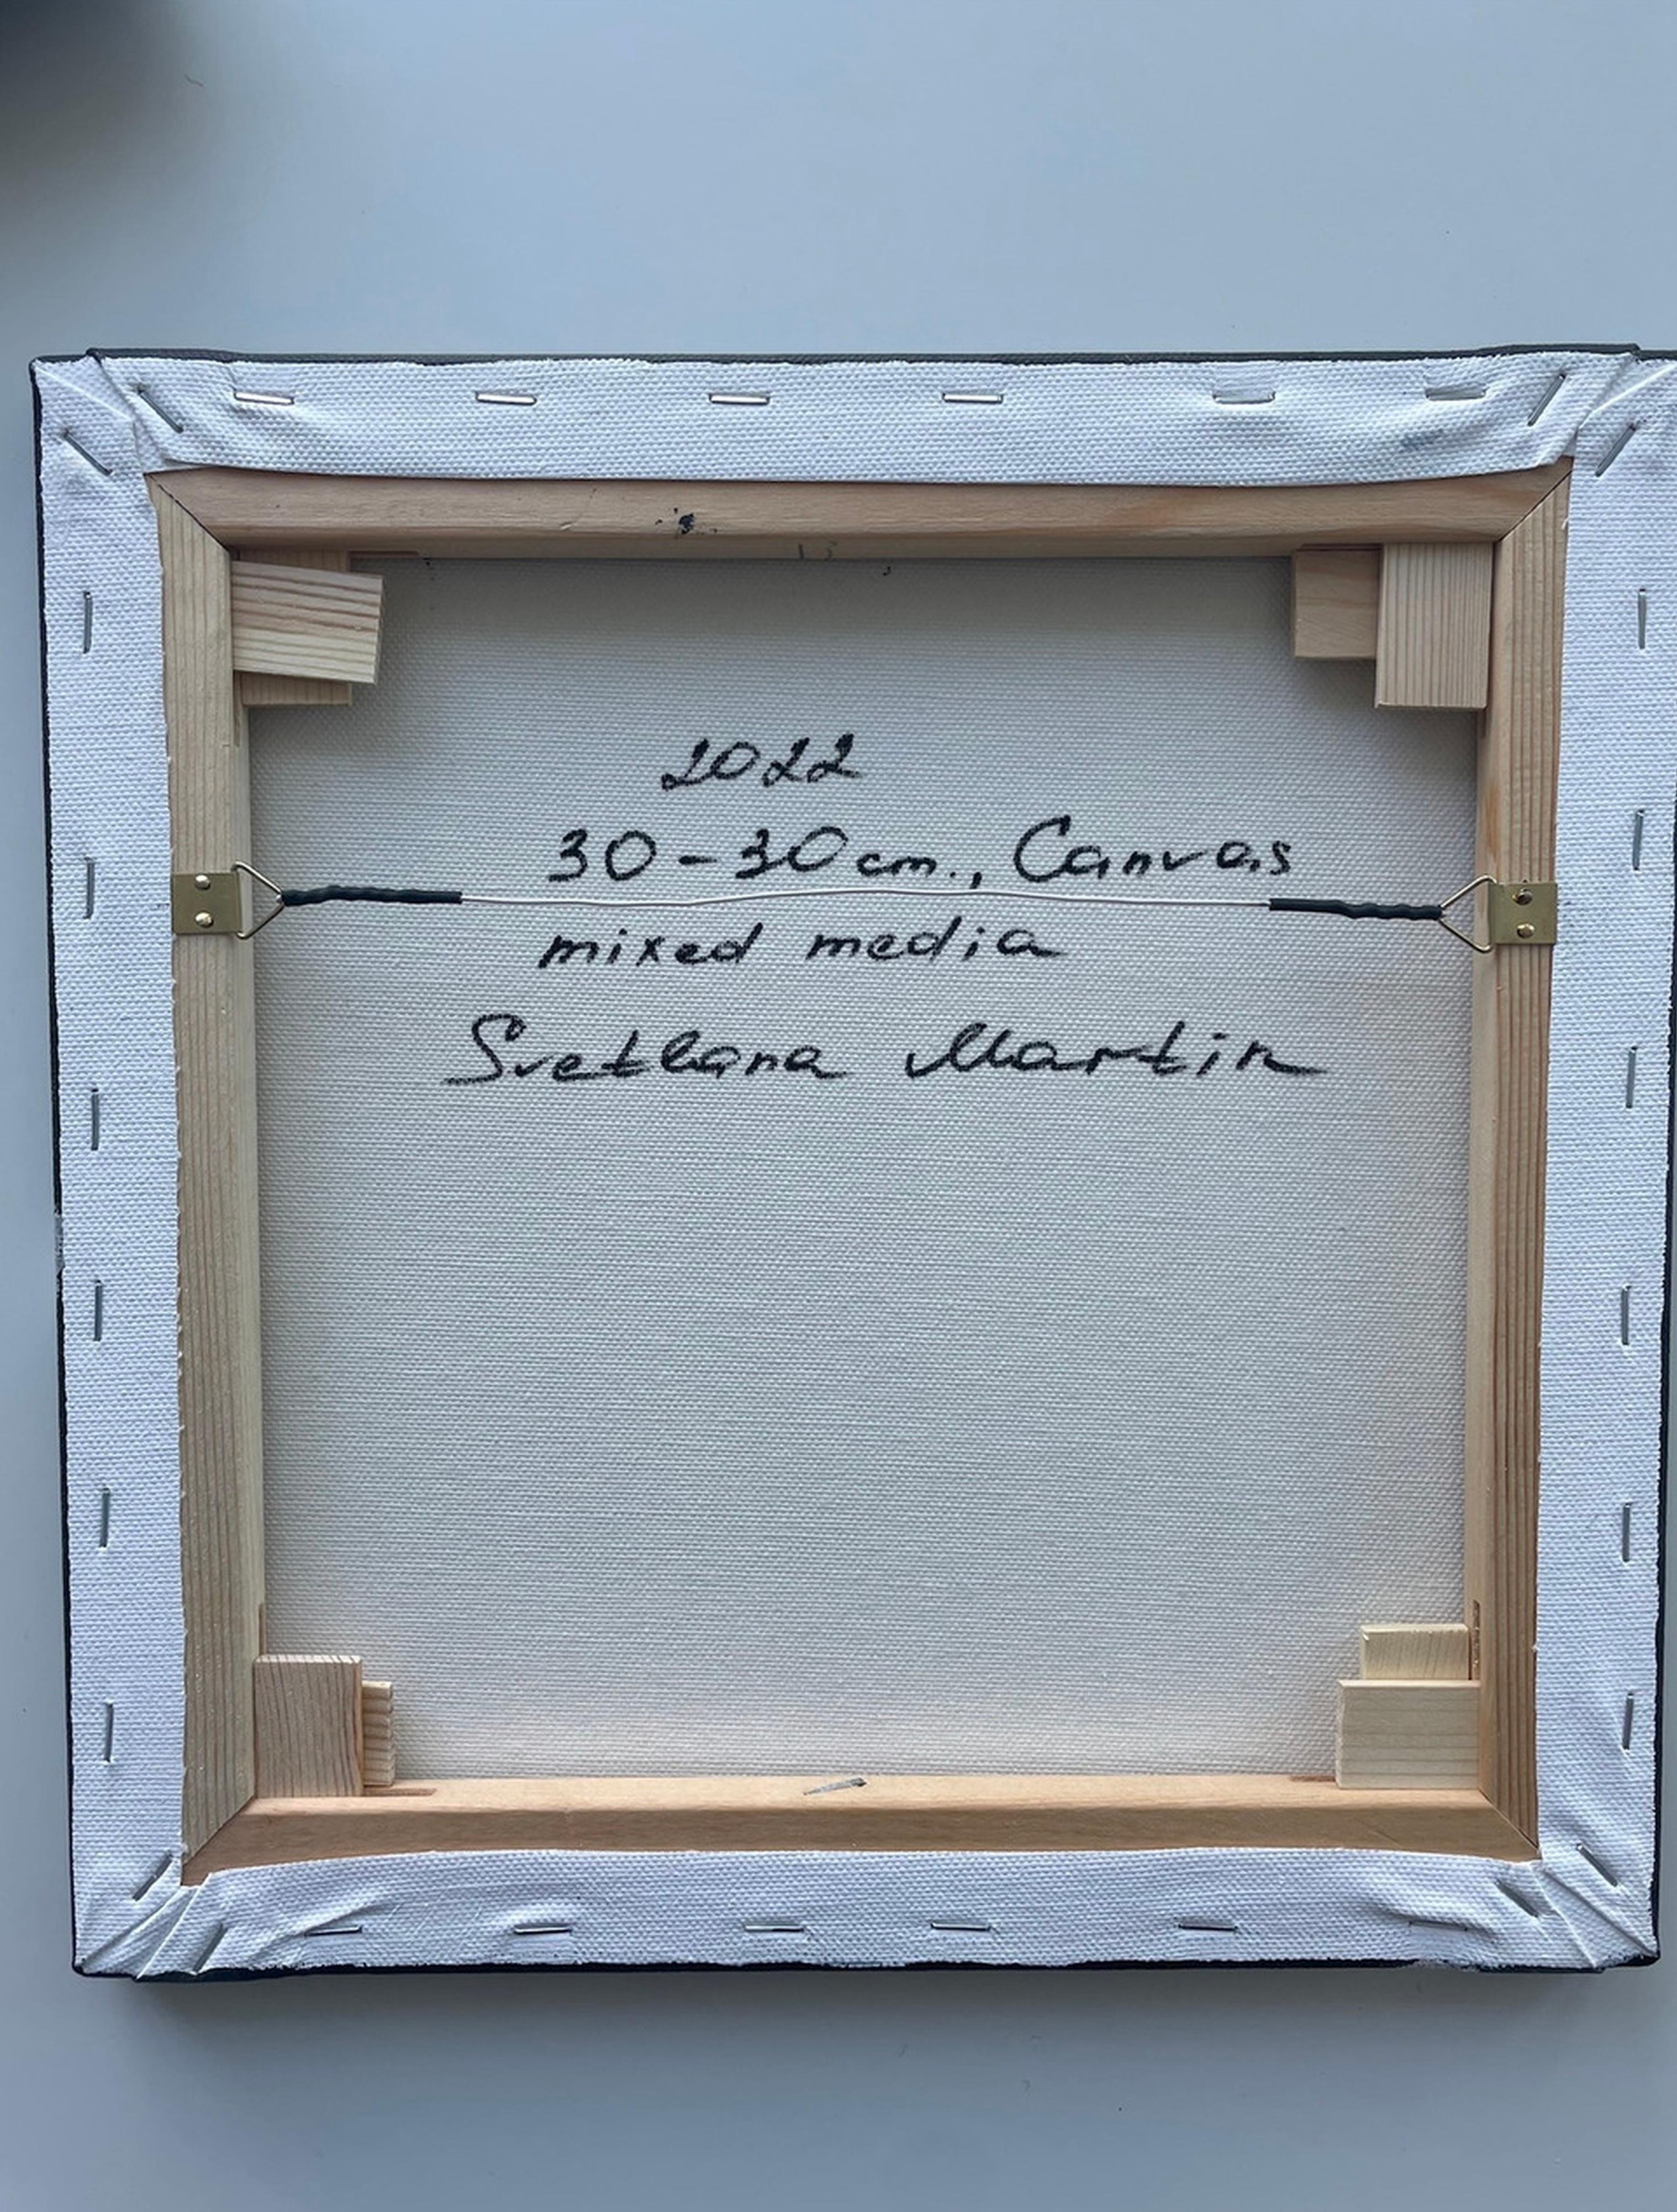 2022
30-30cm., Canvas
mixed media
Svetlana Martin